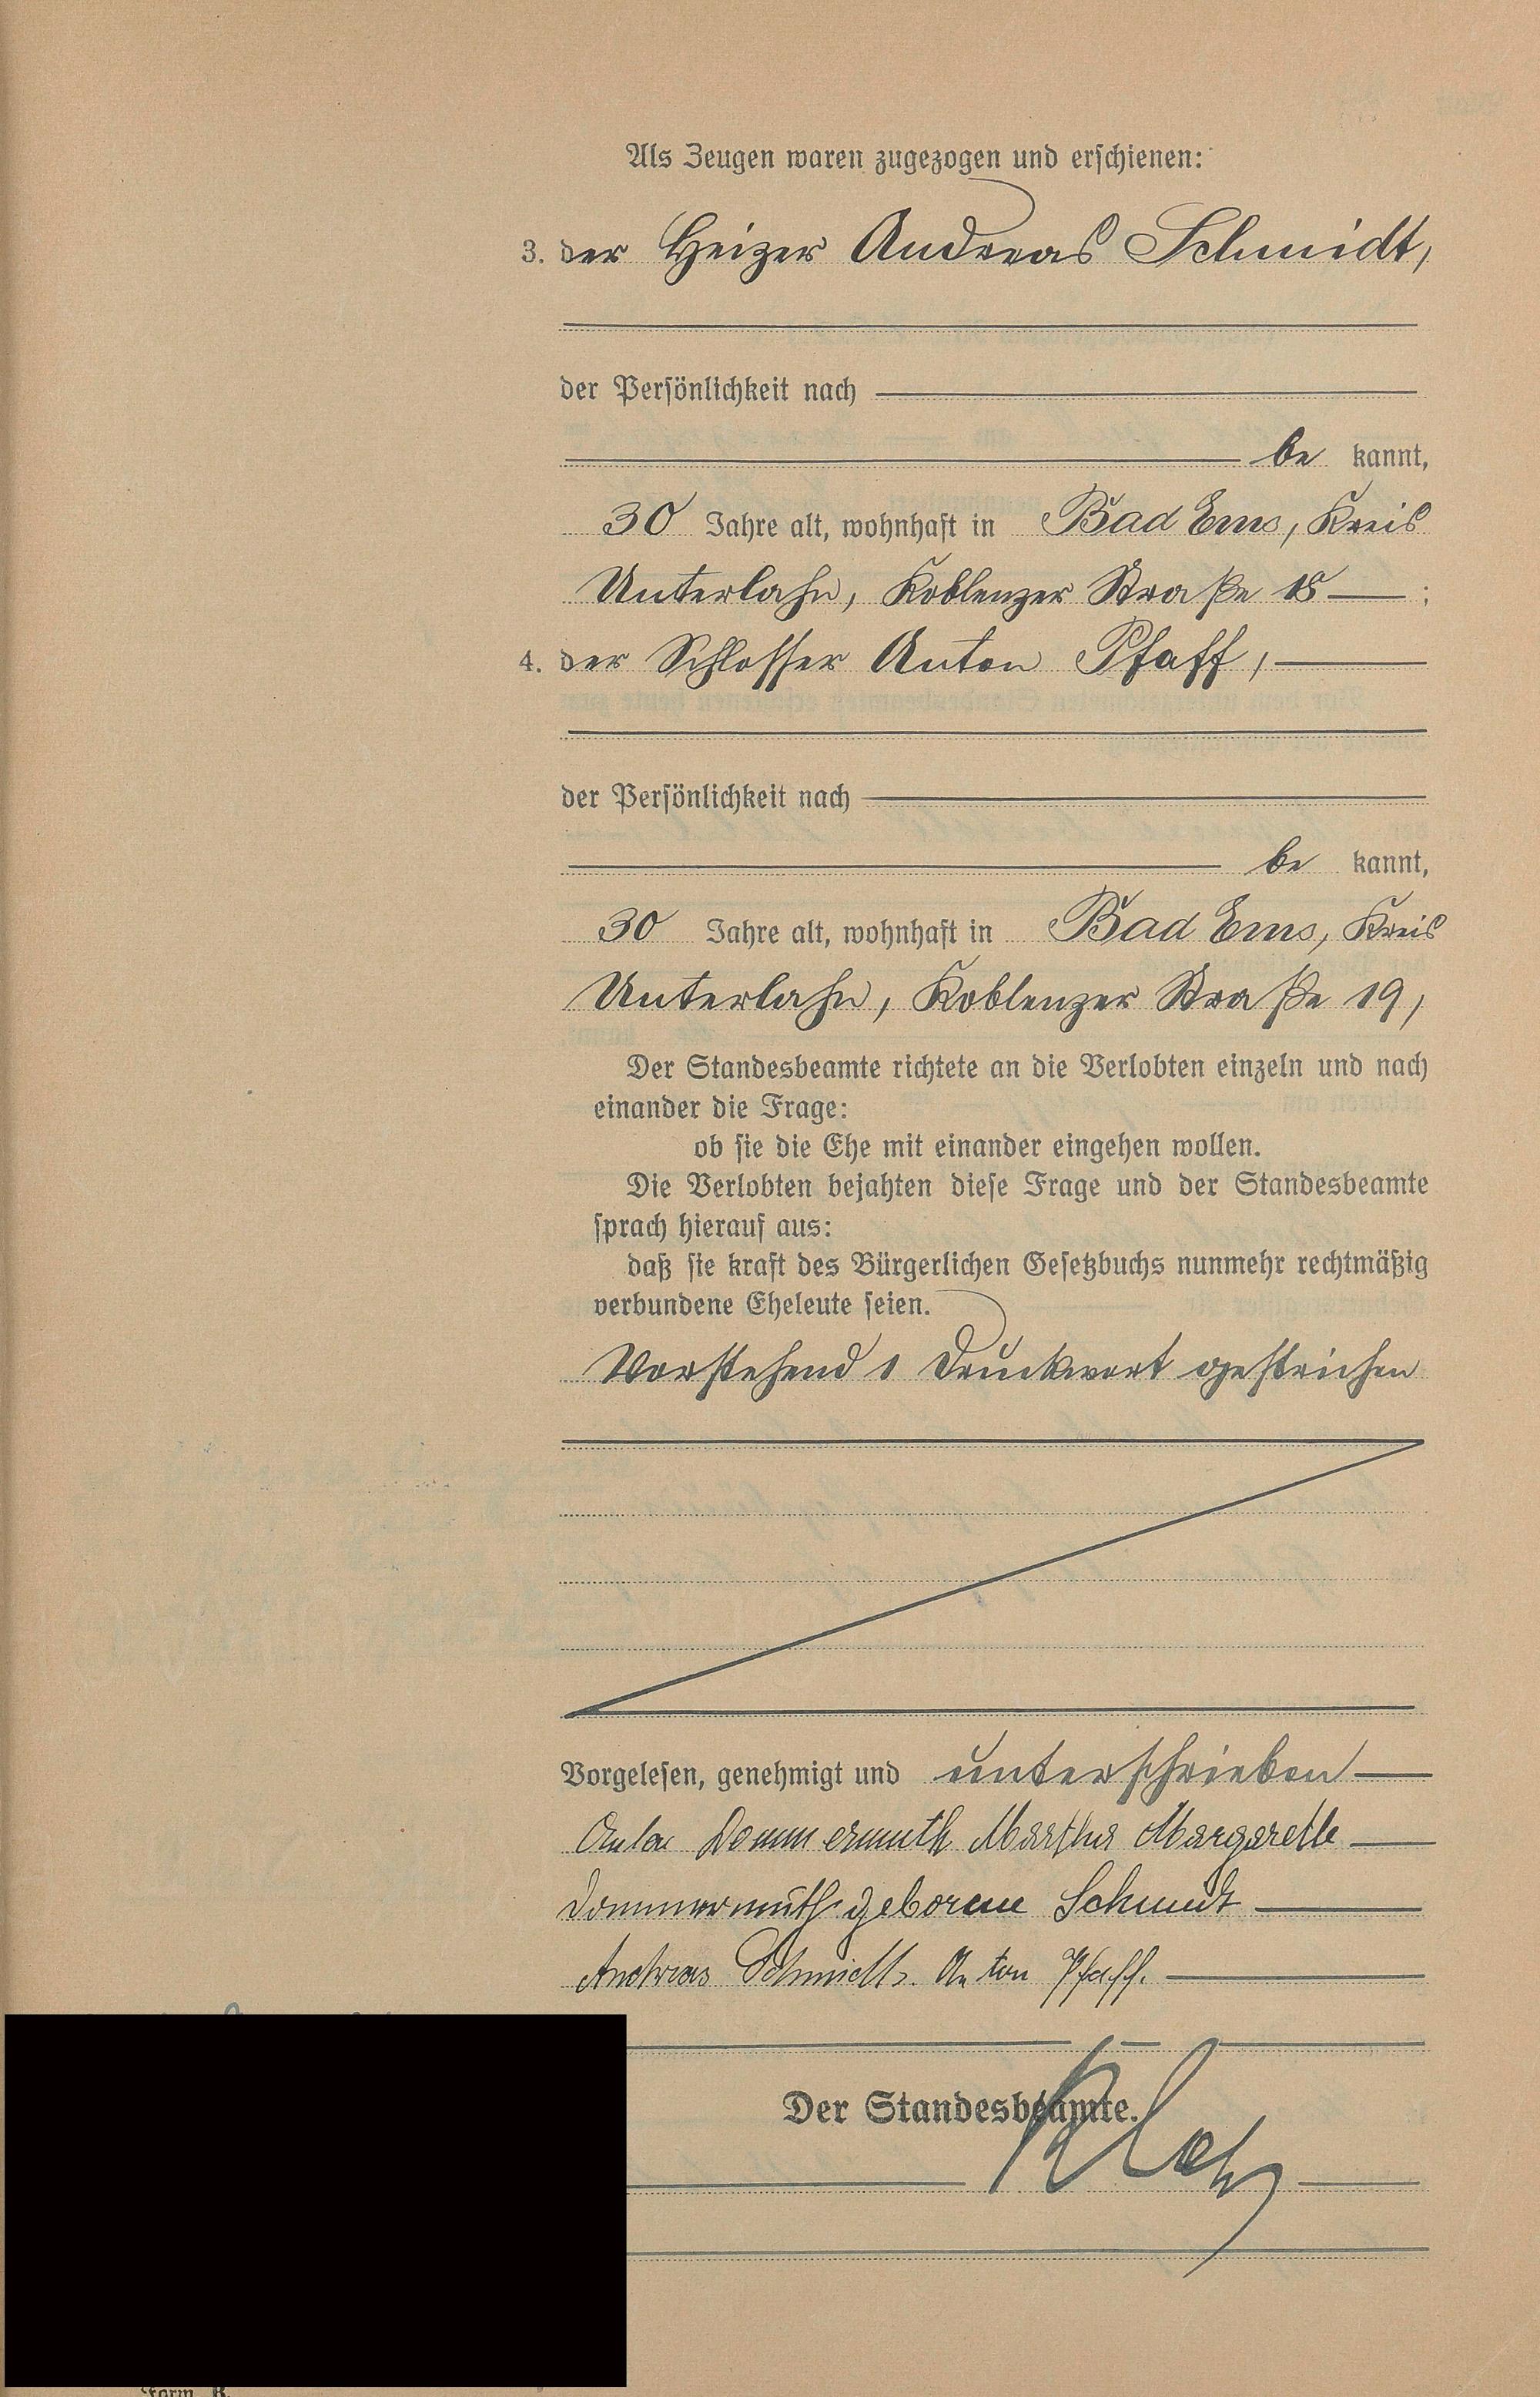 Als Zeugen waren zugezogen und erschienen:
3. der Heizer Andreas Schmidt,
der Persönlichkeit nach
be kannt,
30 Jahre alt, wohnhaft in Bad Ems, Kreis
Unterlahn, Koblenzer Straße 18 ;
4. der Schlosser Anton Pfaff,
der Persönlichkeit nach
be kannt,
30 Jahre alt, wohnhaft in Bad Ems, Kreis
Unterlahn, Koblenzer Straße 19,
Der Standesbeamte richtete an die Verlobten einzeln und nach
einander die Frage:
ob sie die Ehe mit einander eingehen wollen.
Die Verlobten bejahten diese Frage und der Standesbeamte
sprach hierauf aus:
daß sie kraft des Bürgerlichen Gesetzbuchs nunmehr rechtmäßig
verbundene Eheleute seien.
Vorstehend 1 Druckwort gestrichen
Vorgelesen, genehmigt und unterschrieben
Dommermuth Martha Margarethe
Dommermuth geborene Schmidt
Andreas Schmidt. Anton Pfaff.
Der Standesbeamte.
Form. B.